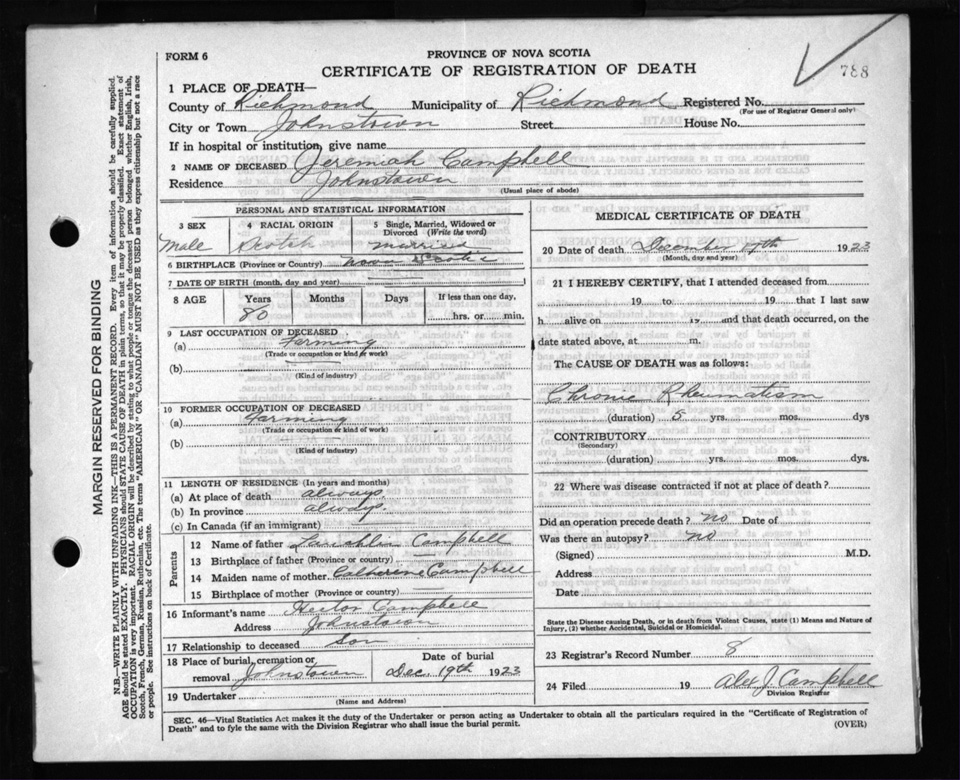 FORM 6
PROVINCE OF NOVA SCOTIA
CERTIFICATE OF REGISTRATION OF DEATH
788
1 PLACE OF DEATH—
County of Richmond Municipality of Richmond Registered No.
(For use of Registrar General only)
City or Town Johnstown Street House No.
If in hospital or institution, give name
2 NAME OF DECEASED Jeremiah Campbell
Residence Johnstown
(Usual place of abode)
PERSONAL AND STATISTICAL INFORMATION
3 SEX 4 RACIAL ORIGIN 5 Single, Married, Widowed or Divorced (Write the word)
Male Scotch married
6 BIRTHPLACE (Province or Country) Nova Scotia
7 DATE OF BIRTH (month, day and year)
8 AGE Years Months Days If less than one day,
80 hrs. or min.
9 LAST OCCUPATION OF DECEASED
(a) Farming
(Trade or occupation or kind of work)
(b)
(Kind of industry)
10 FORMER OCCUPATION OF DECEASED
(a) Farming
(Trade or occupation or kind of work)
(b)
(Kind of industry)
11 LENGTH OF RESIDENCE (In years and months)
(a) At place of death always
(b) In province always
(c) In Canada (if an immigrant)
Parents
12 Name of father Lauchlin Campbell
13 Birthplace of father (Province or country)
14 Maiden name of mother Catherine Campbell
15 Birthplace of mother (Province or country)
16 Informant's name Hector Campbell
Address Johnstown
17 Relationship to deceased Son
18 Place of burial, cremation or removal Johnstown Date of burial Dec. 19th 1923
19 Undertaker
(Name and Address)
MEDICAL CERTIFICATE OF DEATH
20 Date of death December 17th 1923
(Month, day and year)
21 I HEREBY CERTIFY, that I attended deceased from
19 to 19 that I last saw
h alive on 19 and that death occurred, on the
date stated above, at m.
The CAUSE OF DEATH was as follows:
Chronic Rheumatism
(duration) 5 yrs. mos. dys
CONTRIBUTORY
(Secondary)
(duration) yrs. mos. dys.
22 Where was disease contracted if not at place of death?
Did an operation precede death? no Date of
Was there an autopsy? no
(Signed) M.D.
Address
Date
State the Disease causing Death, or in death from Violent Causes, state (1) Means and Nature of
Injury, (2) whether Accidental, Suicidal or Homicidal.
23 Registrar's Record Number 8
24 Filed 19 Alex J. Campbell
Division Registrar
SEC. 46—Vital Statistics Act makes it the duty of the Undertaker or person acting as Undertaker to obtain all the particulars required in the "Certificate of Registration of
Death" and to fyle the same with the Division Registrar who shall issue the burial permit.
(OVER)
MARGIN RESERVED FOR BINDING
N.B.—WRITE PLAINLY WITH UNFADING INK—THIS IS A PERMANENT RECORD. Every item of Information should be carefully supplied.
AGE should be stated EXACTLY. PHYSICIANS should STATE CAUSE OF DEATH in plain terms, so that it may be properly classified. Exact statement of
OCCUPATION is very important. RACIAL ORIGIN will be described by stating to what people or tongue the deceased person belonged whether English, Irish,
Scotch, French, German, Russian, Ruthenian, etc. The terms "AMERICAN" OR "CANADIAN" MUST NOT BE USED as they express citizenship but not a race
or people. See instructions on back of Certificate.